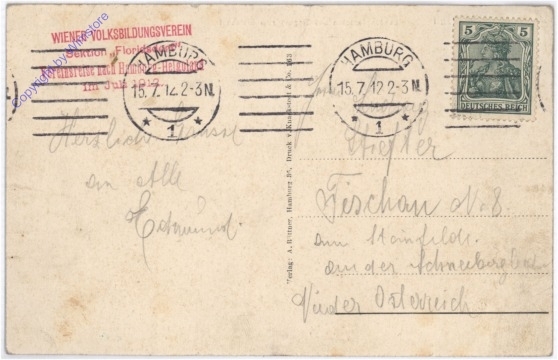 WIENER VOLKSBILDUNGSVEREIN
Sektion „Floridsdorf"
Vereinsreise nach Hamburg-Helgoland
im Juli 1912
Copyright by WInStore
HAMBURG
15.7.12.2-3N.
* 1 *
HAMBURG
15.7.12.2-3N.
* 1 *
5 5
DEUTSCHES REICH
Herzliche Grüsse
an Alle
Edmund.
Verlag: A. Büttner, Hamburg 30. Druck v. Knackstedt & Co. 243
Stefter
Fischau N. 8.
am Steinfelde
an der Schneebergbahn
Nieder Österreich